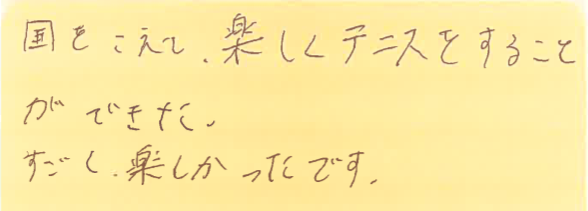 国をこえて、楽しくテニスをすること
ができた。
すごく、楽しかったです。